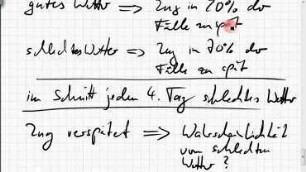 gutes Wetter ⟹ Zug in 20% der
Fälle zu spät
schlechtes Wetter ⟹ Zug in 70% der
Fälle zu spät
im Schnitt jeden 4. Tag schlechtes Wetter
Zug verspätet ⟹ Wahrscheinlichkeit
von schlechtem
Wetter?